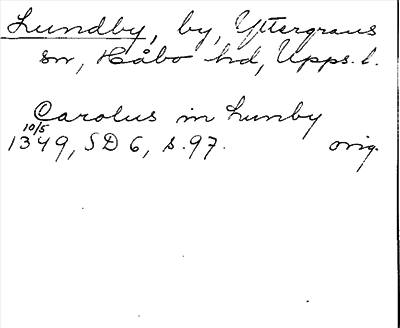 Lundby, by, Yttergrans
sn, Håbo hd, Upps. l.
Carolus in Lunby
10/5
1349, SD 6, s. 97. orig.